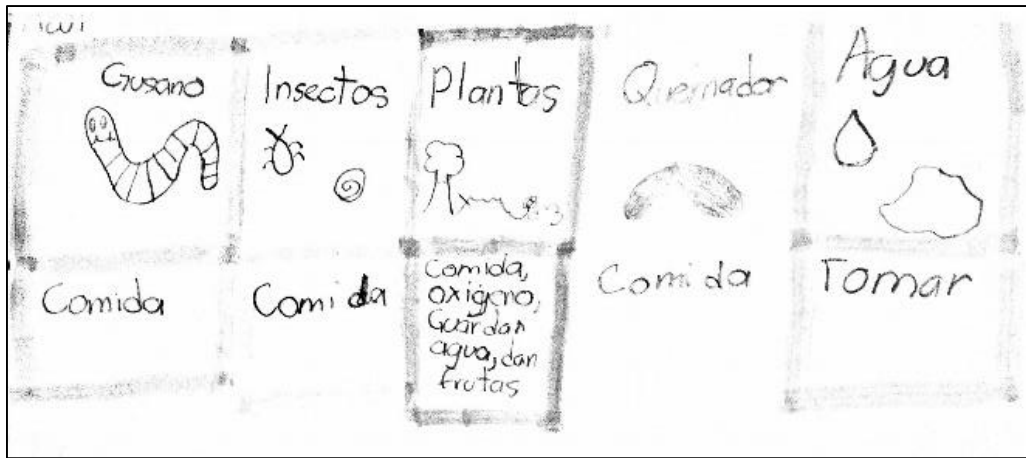 Gusano
Insectos
Plantas
Quemador
Agua
Comida
Comida
Comida,
oxigeno,
Guardan
agua, dan
frutas
Comida
Tomar